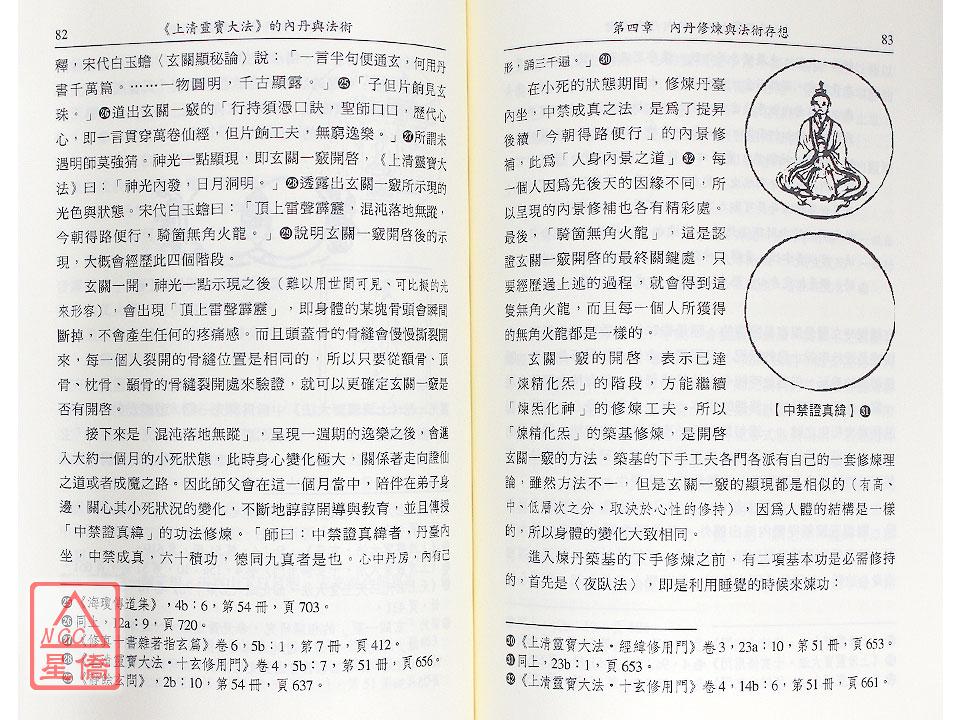 82
《上清靈寶大法》的內丹與法術
釋，宋代白玉蟾〈玄關顯秘論〉說：「一言半句便通玄，何用丹
書千萬篇。……一物圓明，千古顯露。」㉕「子但片餉見玄
珠。」㉖道出玄關一竅的「行持須憑口訣，聖師口口，歷代心
心，即一言貫穿萬卷仙經，但片餉工夫，無窮逸樂。」㉗所謂未
遇明師莫強猜。神光一點顯現，即玄關一竅開啓，《上清靈寶大
法》曰：「神光內發，日月洞明。」㉘透露出玄關一竅所示現的
光色與狀態。宋代白玉蟾曰：「頂上雷聲霹靂，混沌落地無蹤，
今朝得路便行，騎箇無角火龍。」㉙說明玄關一竅開啓後的示
現，大概會經歷此四個階段。
玄關一開，神光一點示現之後（難以用世間可見、可比擬的光
來形容），會出現「頂上雷聲霹靂」，即身體的某塊骨頭會瞬間
斷掉，不會產生任何的疼痛感。而且頭蓋骨的骨縫會慢慢撕裂開
來，每一個人裂開的骨縫位置是相同的，所以只要從額骨、頂
骨、枕骨、顳骨的骨縫裂開處來驗證，就可以更確定玄關一竅是
否有開啓。
接下來是「混沌落地無蹤」，呈現一週期的逸樂之後，會進
入大約一個月的小死狀態，此時身心變化極大，關係著走向證仙
之道或者成魔之路。因此師父會在這一個月當中，陪伴在弟子身
邊，關心其小死狀況的變化，不斷地諄諄開導與教育，並且傳授
「中禁證真緯」的功法修煉。「師曰：中禁證真緯者，丹臺內
坐，中禁成真，六十積功，德同九真者是也。心中丹房，內有己
㉕《海瓊傳道集》，4b：6，第54冊，頁703。
㉖同上，12a：9，頁720。
㉗《修真十書雜著指玄篇》卷6，5b：1，第7冊，頁412。
㉘《上清靈寶大法・十玄修用門》卷4，5b：7，第51冊，頁656。
，2b：10，第54冊，頁637。
NCC
星僑
第四章　內丹修煉與法術存想
83
形，誦三千遍。」㉚
在小死的狀態期間，修煉丹臺
內坐，中禁成真之法，是爲了提昇
後續「今朝得路便行」的內景修
補，此爲「人身內景之道」㉜，每
一個人因爲先後天的因緣不同，所
以呈現的內景修補也各有精彩處。
最後，「騎箇無角火龍」，這是認
證玄關一竅開啓的最終關鍵處，只
要經歷過上述的過程，就會得到這
隻無角火龍，而且每一個人所獲得
的無角火龍都是一樣的。
玄關一竅的開啓，表示已達
「煉精化炁」的階段，方能繼續
「煉炁化神」的修煉工夫。所以
「煉精化炁」的築基修煉，是開啓
【中禁證真緯】㉛
玄關一竅的方法。築基的下手工夫各門各派有自己的一套修煉理
論，雖然方法不一，但是玄關一竅的顯現都是相似的（有高、
中、低層次之分，取決於心性的修持），因爲人體的結構是一樣
的，所以身體的變化大致相同。
進入煉丹築基的下手修煉之前，有二項基本功是必需修持
的，首先是〈夜臥法〉，即是利用睡覺的時候來煉功：
㉚《上清靈寶大法・經緯修用門》卷3，23a：10，第51冊，頁653。
㉛同上，23b：1，頁653。
㉜《上清靈寶大法・十玄修用門》卷4，14b：6，第51冊，頁661。